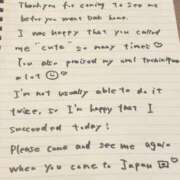 Thank you for coming to see me
before you went back home.
I was happy that you called
me "cute" so many times ♡
You also praised my oral technique
a lot ☺
I'm not usually able to do it
twice, so I'm happy that I
succeeded today!
Please come and see me again
when you come to Japan